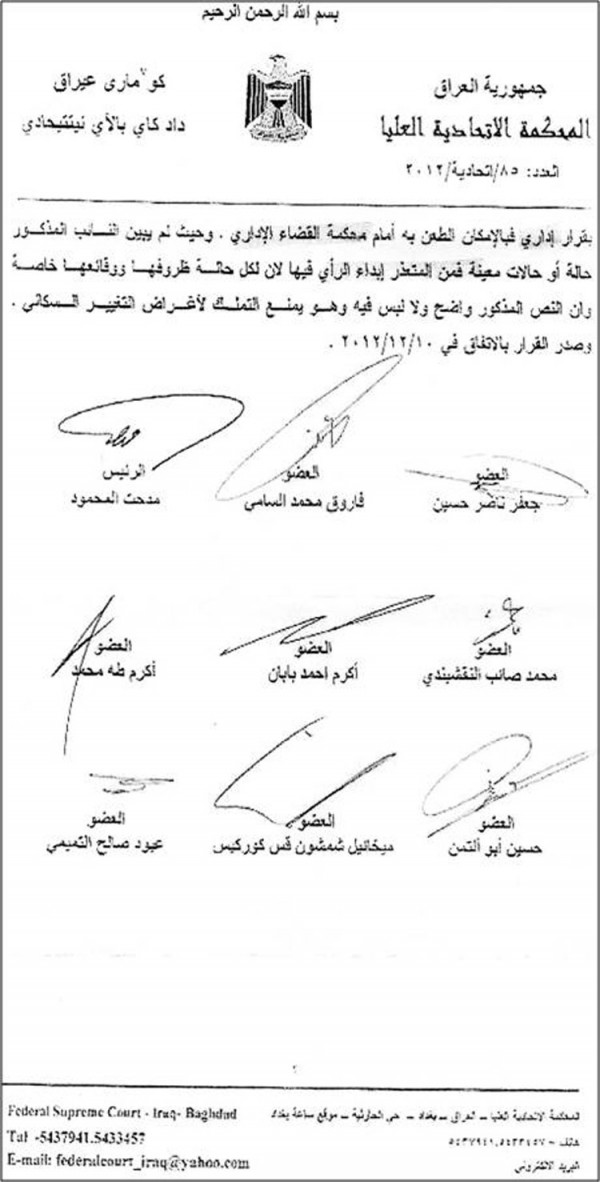 بسم الله الرحمن الرحيم
جمهورية العراق
المحكمة الاتحادية العليا
العدد: ٨٥/اتحادية/٢٠١٢
كوٚماری عیراق
داد كاي بالآي ئيتتيحادي
بقرار إداري فبالإمكان الطعن به أمام محكمة القضاء الإداري . وحيث لم يبين النائب المذكور
حالة أو حالات معينة فمن المتعذر إبداء الرأي فيها لان لكل حالة ظروفها ووقائعها خاصة
وان النص المذكور واضح ولا لبس فيه وهو يمنع التملك لأغراض التغيير السكاني .
وصدر القرار بالاتفاق في ٢٠١٢/١٢/١٠ .
العضو
جعفر ناصر حسين
العضو
فاروق محمد السامي
الرئيس
مدحت المحمود
العضو
محمد صائب النقشبندي
العضو
أكرم احمد بابان
العضو
أكرم طه محمد
العضو
حسين أبو ألتمن
العضو
ميخائيل شمشون قس كوركيس
العضو
عبود صالح التميمي
٢
Federal Supreme Court - Iraq- Baghdad
Tel -5437941.5433457
E-mail: federalcourt_iraq@yahoo.com
المحكمة الاتحادية العليا – العراق – بغداد – حي الحارثية – موقع ساعة بغداد
هاتف – ٥٤٣٧٩٤١,٥٤٣٣٤٥٧
البريد الالكتروني